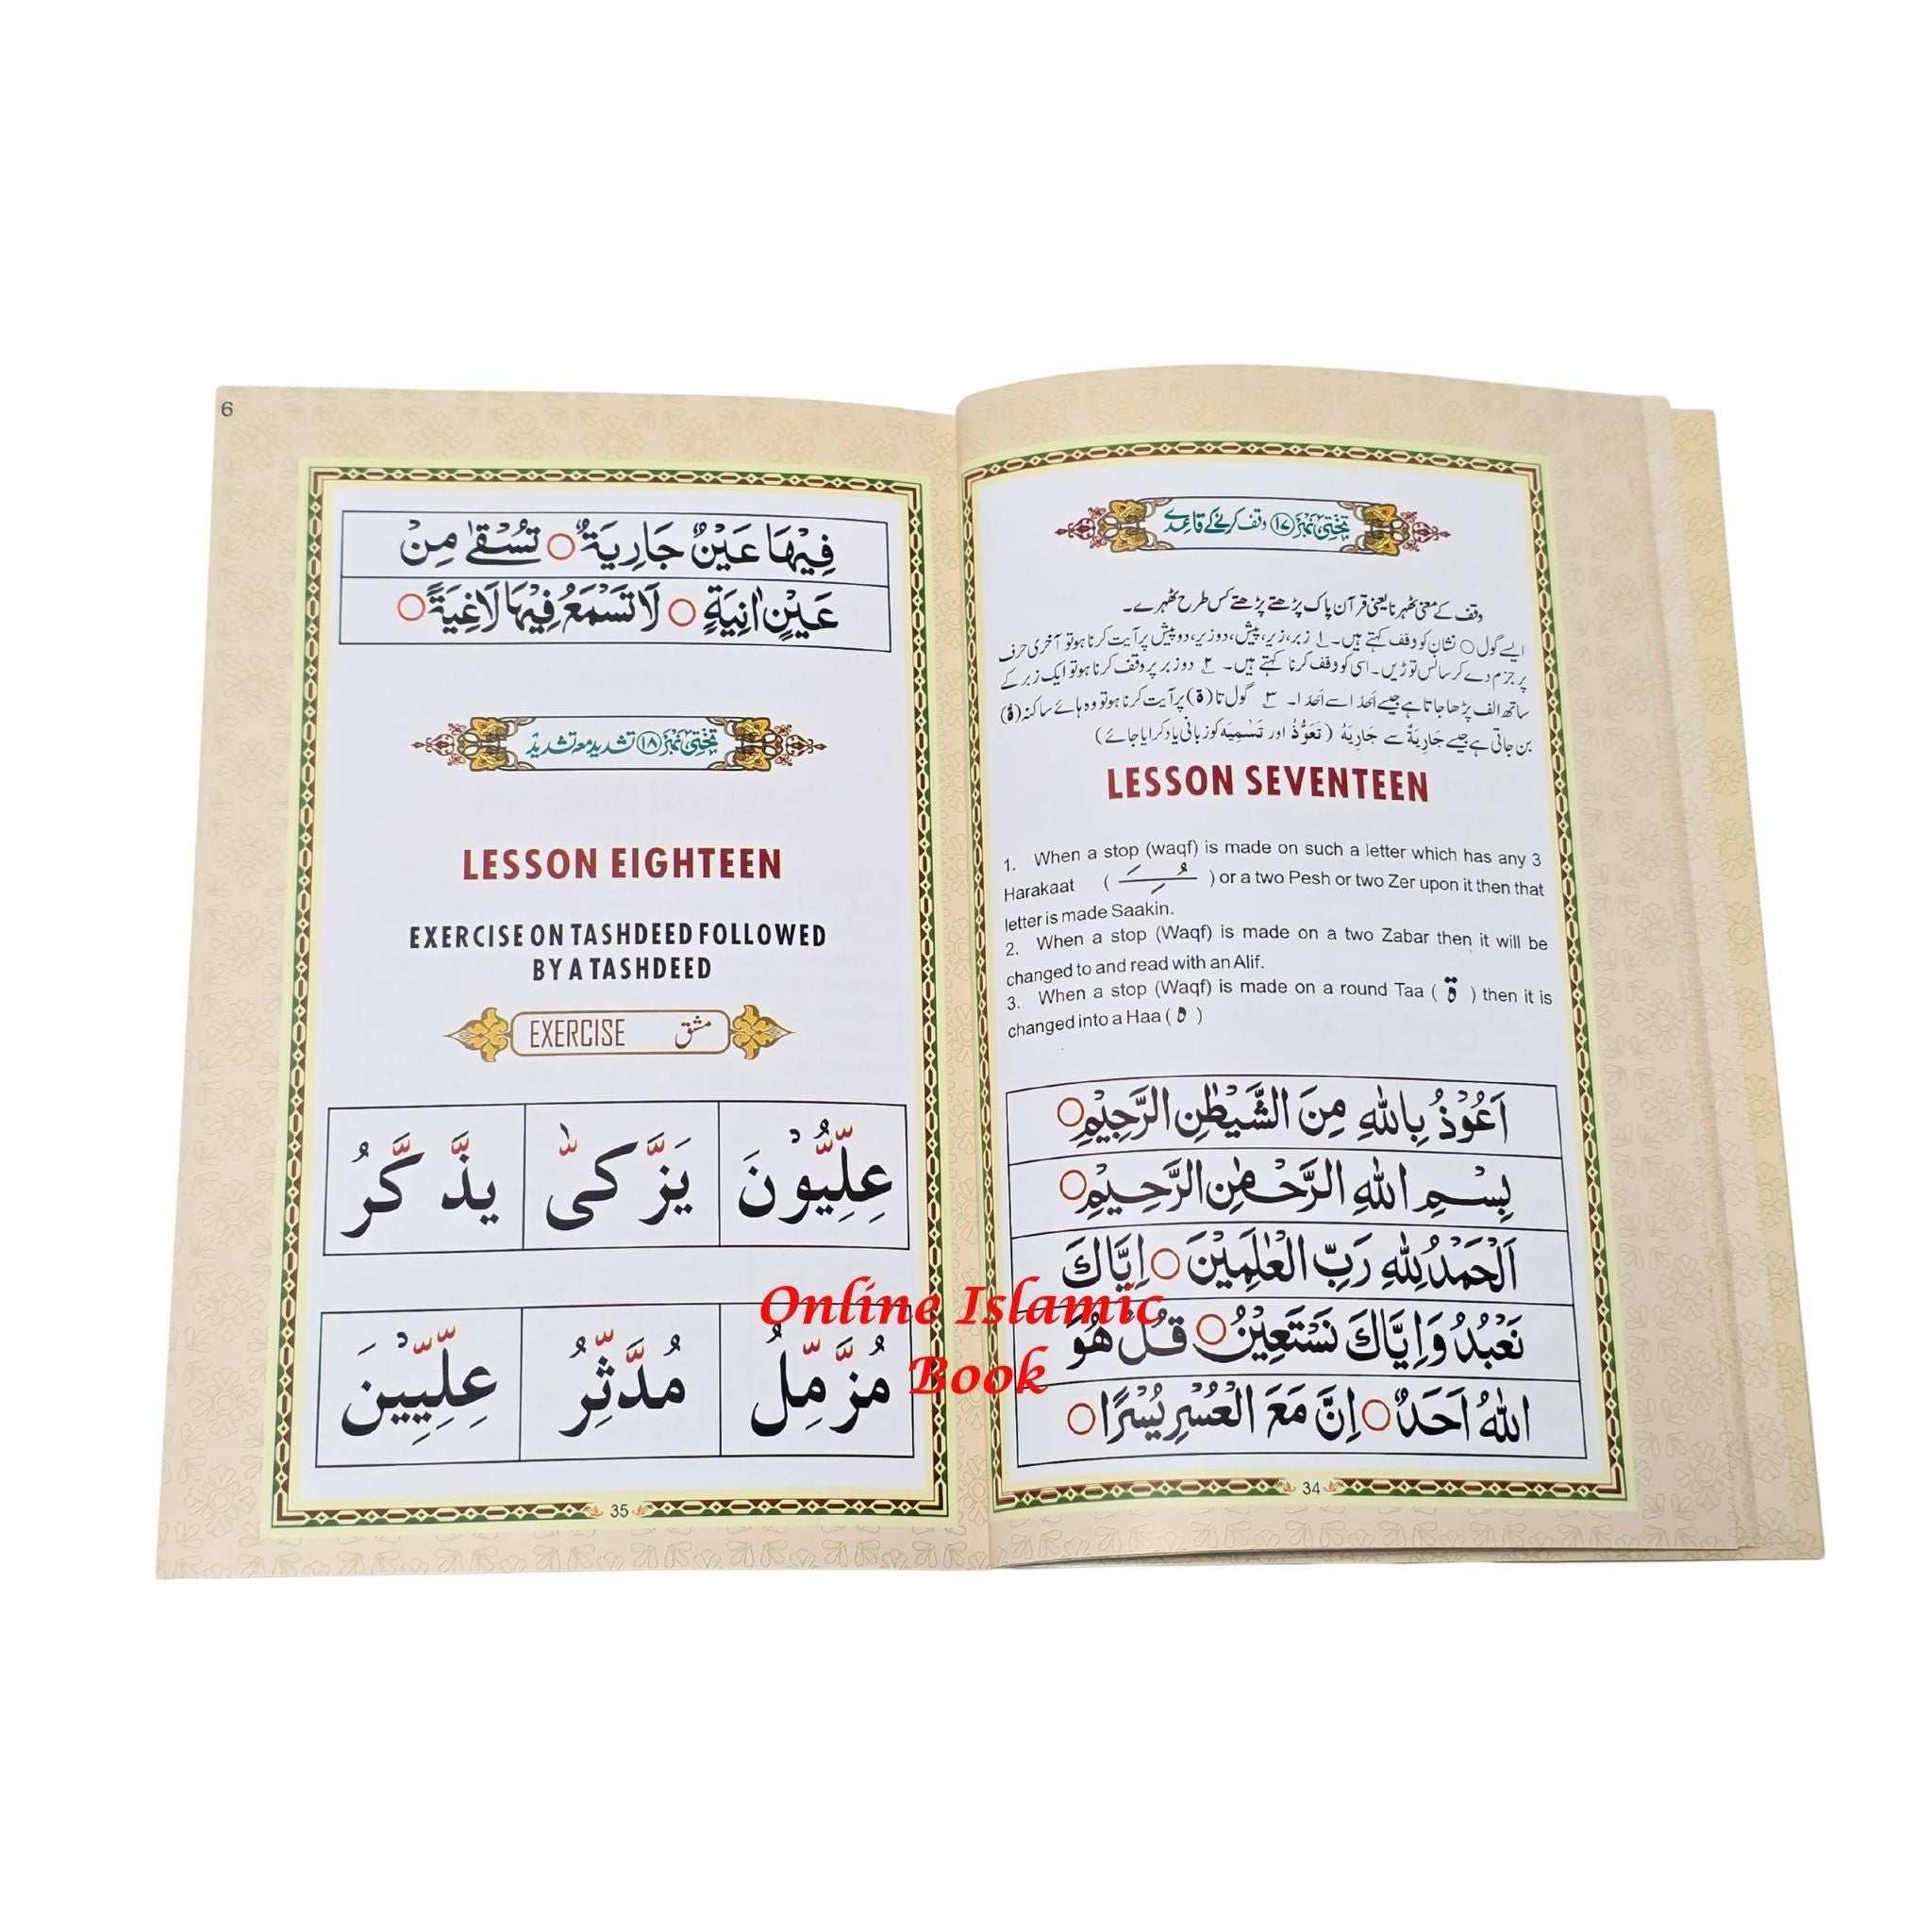 تختی نمبر ۱۷ وقف کرنے کے قاعدے
وقف کے معنی ٹھہرنا یعنی قرآن پاک پڑھتے پڑھتے کس طرح ٹھہرے۔
ایسے گول ○ نشان کو وقف کہتے ہیں۔ ۱ زبر، زیر، پیش، دوزیر، دو پیش پر آیت کرنا ہو تو آخری حرف
پر جزم دے کر سانس توڑیں۔ اسی کو وقف کرنا کہتے ہیں۔ ۲ دوزبر پر وقف کرنا ہو تو ایک زبر کے
ساتھ الف پڑھا جاتا ہے جیسے اَحَدًا سے اَحَدَا۔ ۳ گول تا (ة) پر آیت کرنا ہو تو وہ ہائے ساکنہ (هْ)
بن جاتی ہے جیسے جَارِيَةٌ سے جَارِيَهْ (تَعَوُّذْ اور تَسْمِيَه کو زبانی یاد کرایا جائے)
LESSON SEVENTEEN
1. When a stop (waqf) is made on such a letter which has any 3
Harakaat ( َ ِ ُ ) or a two Pesh or two Zer upon it then that
letter is made Saakin.
2. When a stop (Waqf) is made on a two Zabar then it will be
changed to and read with an Alif.
3. When a stop (Waqf) is made on a round Taa ( ة ) then it is
changed into a Haa ( ه )
اَعُوْذُ بِاللّٰهِ مِنَ الشَّيْطٰنِ الرَّجِيْمِ ○
بِسْمِ اللّٰهِ الرَّحْمٰنِ الرَّحِيْمِ ○
اَلْحَمْدُ لِلّٰهِ رَبِّ الْعٰلَمِيْنَ ○ اِيَّاكَ
نَعْبُدُ وَاِيَّاكَ نَسْتَعِيْنُ ○ قُلْ هُوَ
اللّٰهُ اَحَدٌ ○ اِنَّ مَعَ الْعُسْرِ يُسْرًا ○
34
6
فِيْهَا عَيْنٌ جَارِيَةٌ ○ تُسْقٰى مِنْ
عَيْنٍ اٰنِيَةٍ ○ لَا تَسْمَعُ فِيْهَا لَاغِيَةً ○
تختی نمبر ۱۸ تشدید معہ تشدید
LESSON EIGHTEEN
EXERCISE ON TASHDEED FOLLOWED
BY A TASHDEED
EXERCISE مشق
عِلِّيُّوْنَ يَزَّكّٰى يَذَّكَّرُ
مُزَّمِّلُ مُدَّثِّرُ عِلِّيِّيْنَ
35
Online Islamic
Book